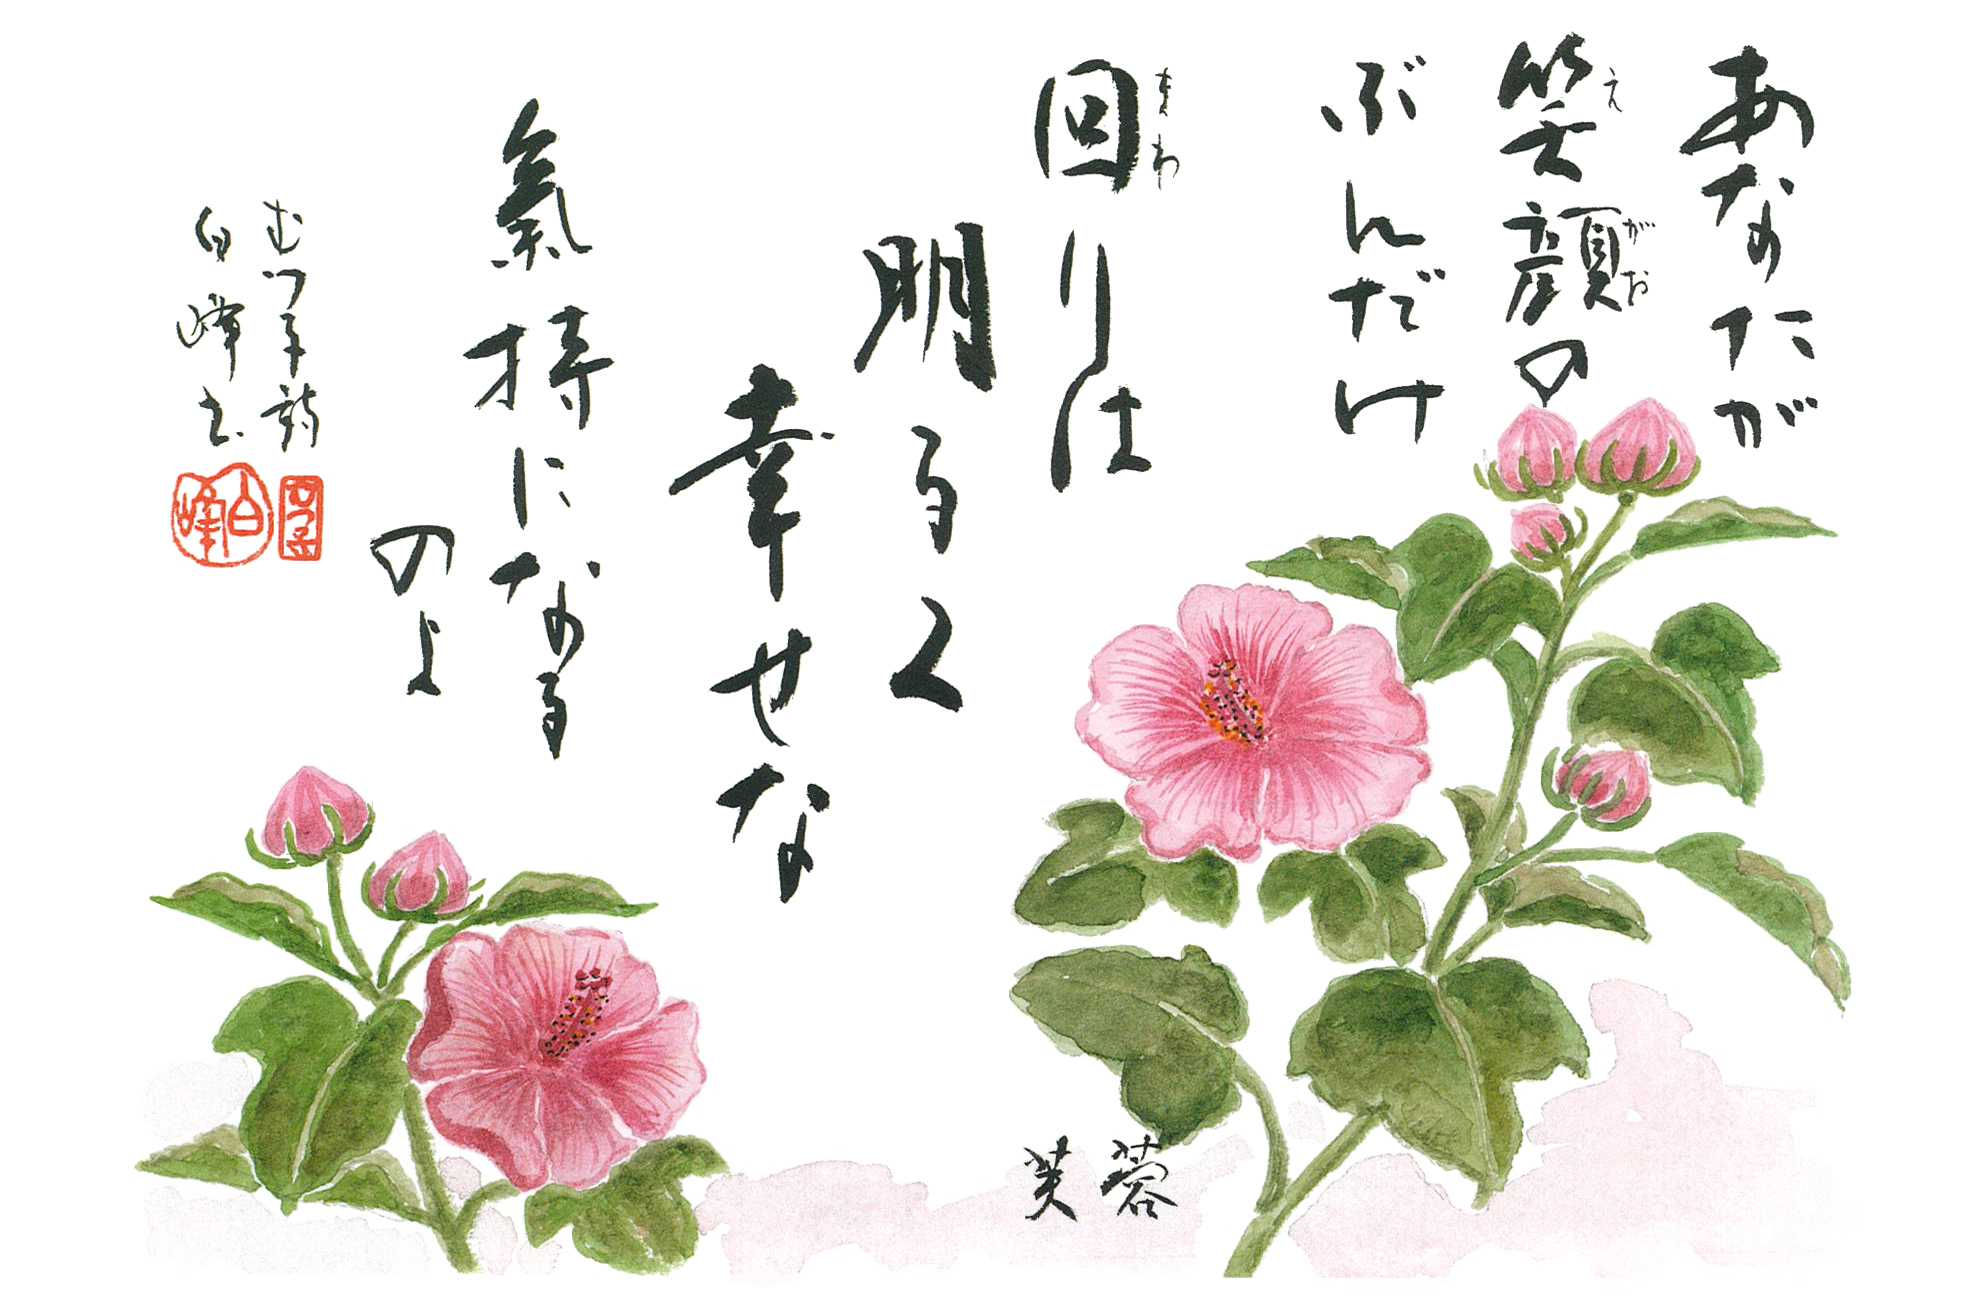 あなたが
笑顔の
えがお
ぶんだけ
回りは
まわ
明るく
幸せな
氣持になる
のよ
詩
白峰書
白峰
芙蓉